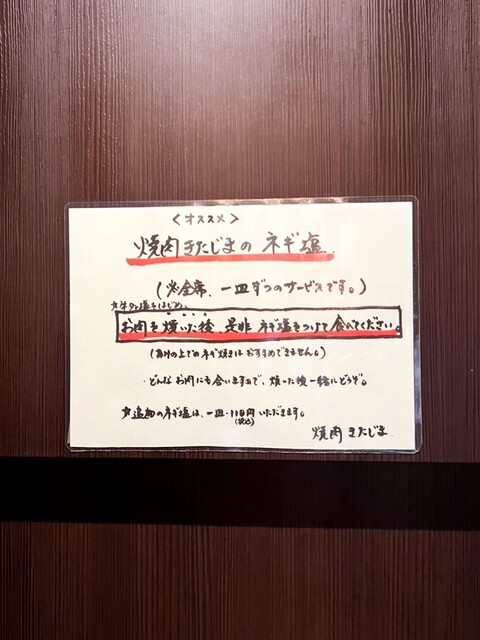 <オススメ>
焼肉きたじまのネギ塩
(※全席、一皿ずつのサービスです。)
※牛タン塩をはじめ、
お肉を焼いた後、是非ネギ塩をつけて食べてください。
の上でのネギ焼きはおすすめできません。)
・どんなお肉にも合いますので、焼いた後一緒にどうぞ。
※追加のネギ塩は、一皿・110円いただきます。
(税込)
焼肉きたじま